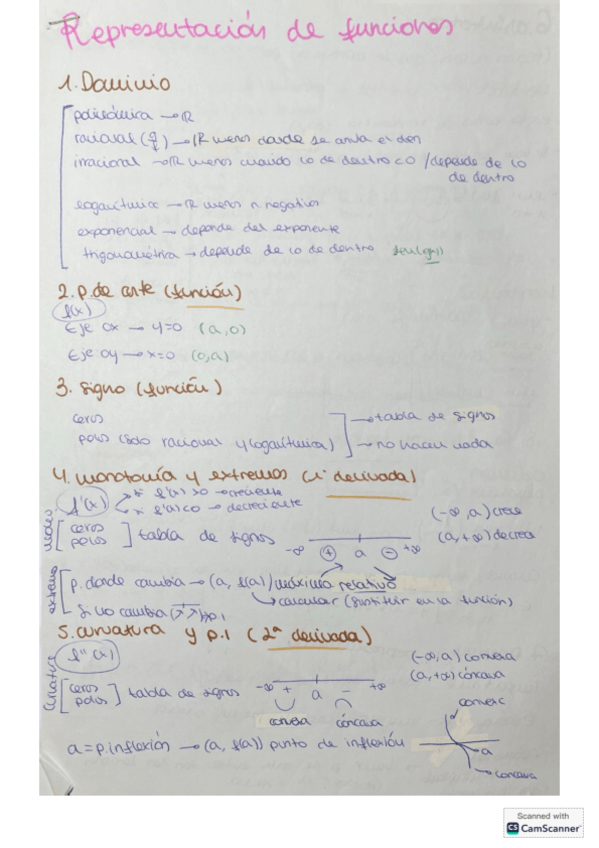 Representación de funciones
1. Dominio
polinómica → ℝ
racional → ℝ menos donde se anula el den
irracional → ℝ menos cuando lo de dentro < 0 / depende de lo
de dentro
logarítmica → ℝ menos n negativos
exponencial → depende del exponente
trigonométrica → depende de lo de dentro
2. p. de corte (función)
f(x)
Eje ox → y=0 (a,0)
Eje oy → x=0 (0,a)
3. Signo (función)
ceros → tabla de signos
polos (solo racional y logarítmica) → no hacer nada
4. monotonía y extremos (1ª derivada)
f'(x) si f'(a) > 0 → creciente
si f'(a) < 0 → decreciente
ceros
polos
tabla de signos
-∞ + a - +∞
(-∞, a) crece
(a, +∞) decrece
extremos
p. donde cambia → (a, f(a)) máximo relativo
calcular (sustituir en la función)
Si no cambia
5. curvatura y p.i (2ª derivada)
f''(x)
(-∞, a) convexa
(a, +∞) cóncava
ceros
polos
tabla de signos
-∞ + a - +∞
convexa cóncava
a = p. inflexión → (a, f(a)) punto de inflexión
a
concava
Scanned with
CS CamScanner